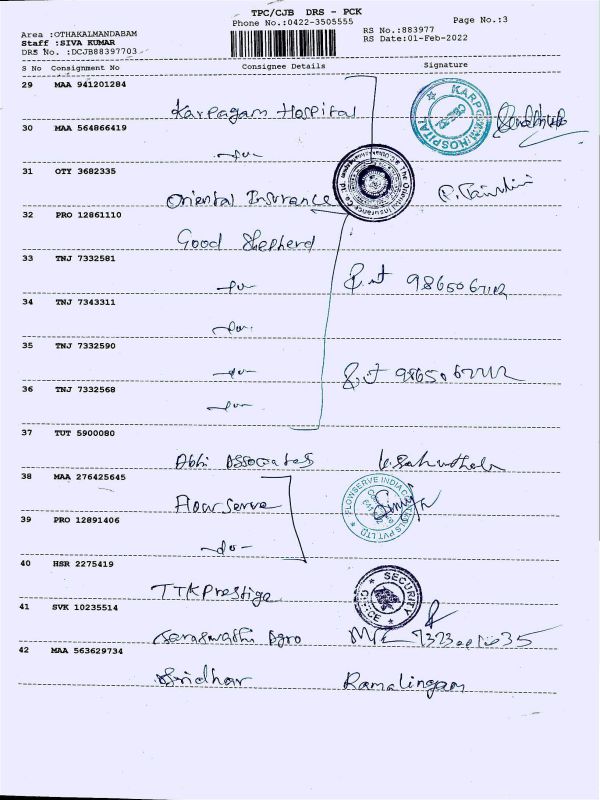 TPC/CJB DRS - PCK
Phone No.:0422-3505555
Page No.:3
Area :OTHAKALMANDABAM
Staff :SIVA KUMAR
DRS No. :DCJB88397703
RS No.:883977
RS Date:01-Feb-2022
S No Consignment No Consignee Details Signature
29 MAA 941201284
Karpagam Hospital
KARPAGAM HOSPITAL
30 MAA 564866419
-do-
31 OTY 3682335
Oriental Insurance
The Oriental Insurance Co.
32 PRO 12861110
Good Shepherd
33 TNJ 7332581
-do-
34 TNJ 7343311
-do-
35 TNJ 7332590
-do-
36 TNJ 7332568
-do-
37 TUT 5900080
Abhi Associates
38 MAA 276425645
Flowserve
FLOWSERVE INDIA CONTROLS PVT LTD
39 PRO 12891406
-do-
40 HSR 2275419
TTK Prestige
SECURITY OFFICE
41 SVK 10235514
Saraswathi Agro
42 MAA 563629734
Sridhar Ramalingam